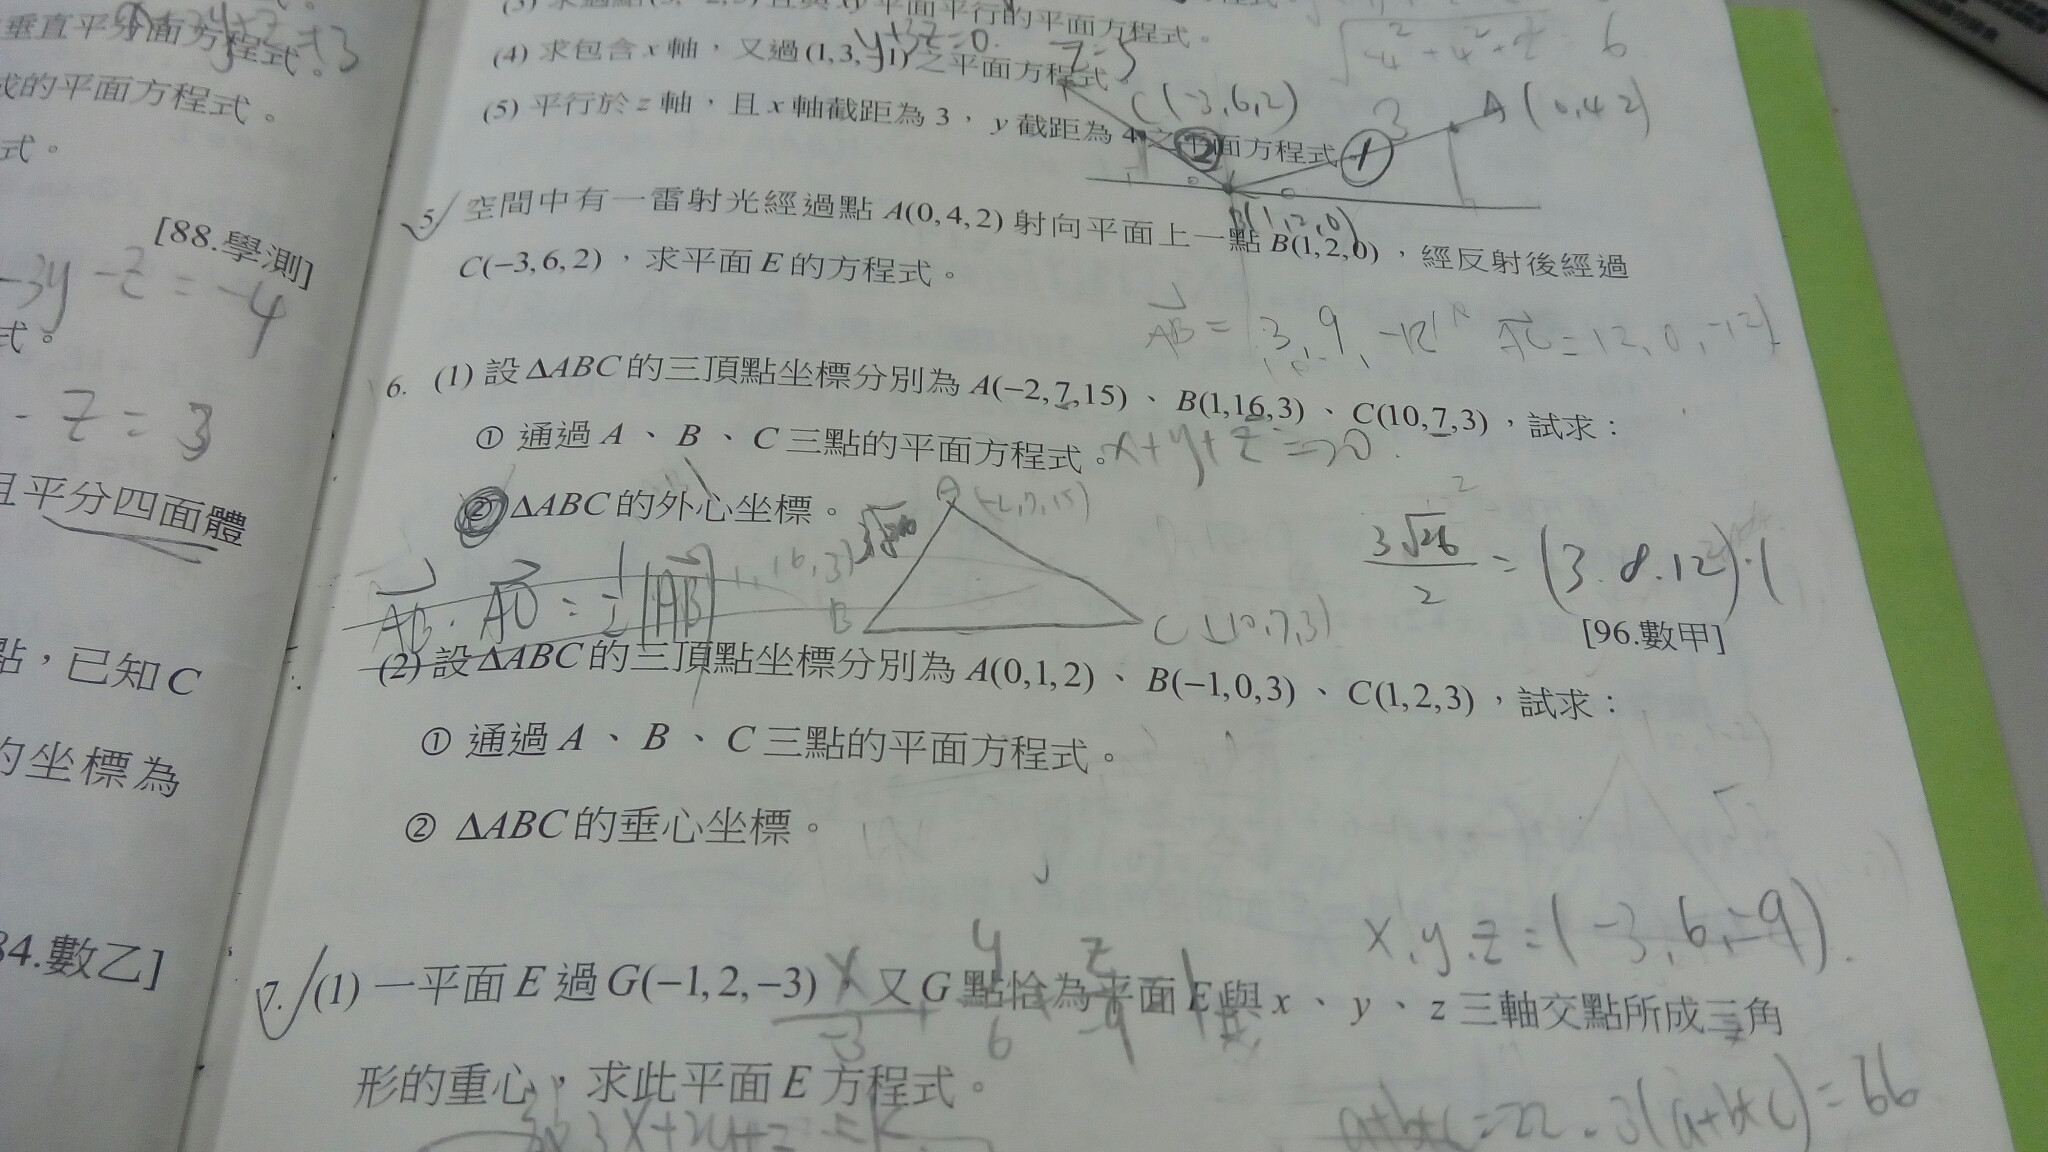 垂直平分面方程式。
成的平面方程式。
式。
[88.學測]
-3y-z=-4
式。
-z=3
且平分四面體
點，已知C
的坐標為
84.數乙]
平面平行的平面方程式。
y+3z=0.
z=5
(4) 求包含 x 軸，又過(1,3,-1)之平面方程式
(5) 平行於 z 軸，且 x 軸截距為 3，y 截距為 4 之平面方程式
C(-3,6,2)
3
A(0,4,2)
② ①
B(1,2,0)
6
5 空間中有一雷射光經過點 A(0,4,2) 射向平面上一點 B(1,2,0)，經反射後經過
C(−3,6,2)，求平面 E 的方程式。
AB = 3,9,-12 AC = 12,0,-12
6. (1) 設ΔABC的三頂點坐標分別為 A(−2,7,15)、B(1,16,3)、C(10,7,3)，試求：
① 通過 A、B、C 三點的平面方程式。x+y+z=20.
② ΔABC的外心坐標。
AB·AO=½|AB|
1,16,3)
B
C (10,7,3)
3√26/2=(3.8.12)·(
[96.數甲]
(2) 設ΔABC的三頂點坐標分別為 A(0,1,2)、B(−1,0,3)、C(1,2,3)，試求：
① 通過 A、B、C 三點的平面方程式。
② ΔABC的垂心坐標。
x.y.z=(-3,6,-9).
7. (1) 一平面 E 過G(−1,2,−3)，又G 點恰為平面 E 與 x、y、z 三軸交點所成三角
x/-3 y/6 z/-9
形的重心，求此平面 E 方程式。
a+b+c=22 3(a+b+c)=66